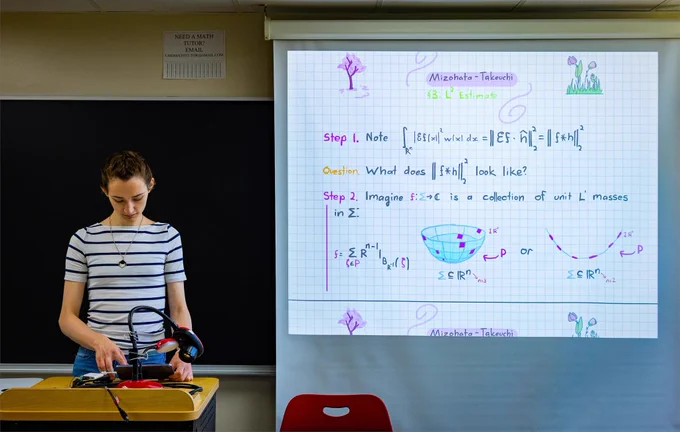 NEED A MATH
TUTOR?
EMAIL
Mizohata-Takeuchi
§3. L² Estimate
Step 1. Note ∫_{ℝⁿ} |Ef(x)|² w(x) dx = ‖Ef · ĥ‖₂² = ‖f*h‖₂²
Question. What does ‖f*h‖₂² look like?
Step 2. Imagine f:Σ→ℂ is a collection of unit L¹ masses
in Σ:
f = Σ_{ξ∈P} R^{n-1} 1_{B_{R⁻¹}(ξ)}
P or P
Σ⊆ℝⁿ n=3 Σ⊆ℝⁿ n=2
Mizohata-Takeuchi